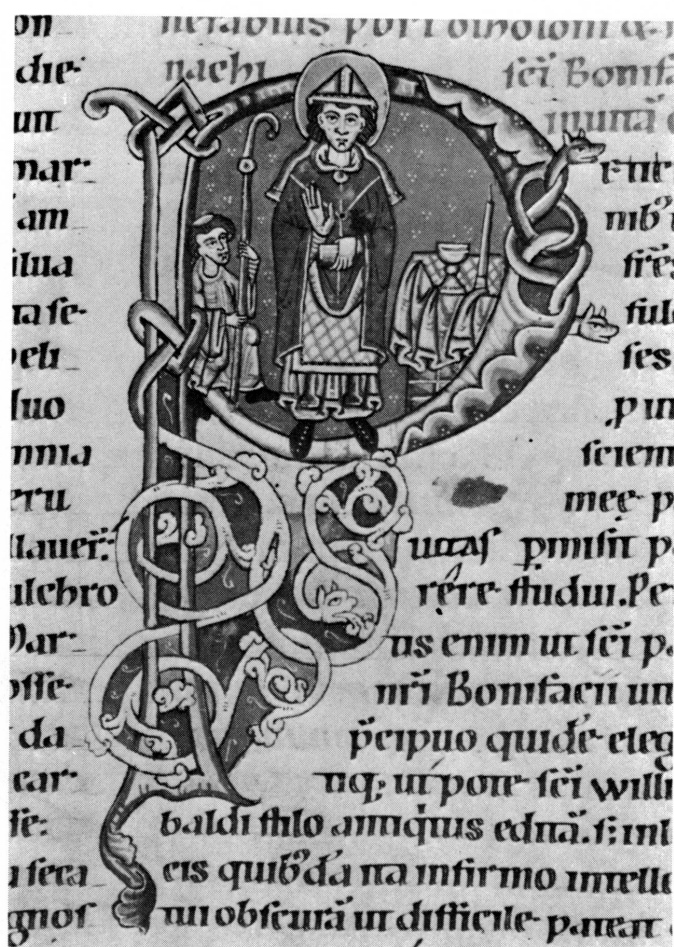 on
die-
unt
mar-
am
ilua
na se-
peli
luo
mnia
eru
llauer̄:
ulchro
Mar-
osse-
da
ear-
se:
u sera
gnos
nachi sc̄i Bonifa
mb᷒
fr̄es
ful
ses
p in
sciem
mee p
uitas p̄misit p
rere studui. Pe
tis enim ut sc̄i pa
nr̄i Bonifacii un
p̄cipuo quidē eleg
tiq; ut pote sc̄i willi
baldi stilo antiq̇tus editā. s;
eis quib᷒dā na infirmo intelle
tui obscurā ut difficile pateat